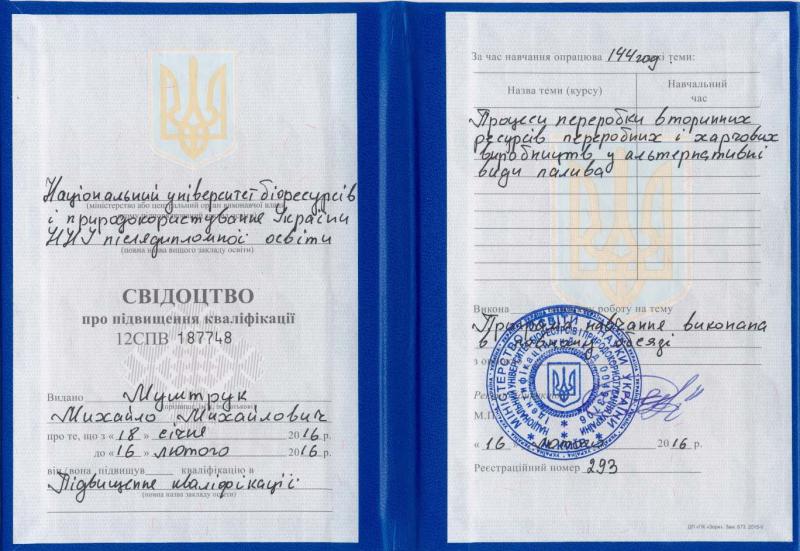 Національний університет біоресурсів
(міністерство або центральний орган виконавчої влади
і природокористування України
ННІ післядипломної освіти
(повна назва вищого закладу освіти)
СВІДОЦТВО
про підвищення кваліфікації
12СПВ 187748
Видано Муштрук
Михайло Михайлович
про те, що з « 18 » січня 2016 р.
до « 16 » лютого 2016 р.
він/вона підвищув кваліфікацію в
Підвищення кваліфікації
(повна назва закладу освіти)
За час навчання опрацюва 144 год кі теми:
Назва теми (курсу)
Навчальний
час
Процеси переробки вторинних
ресурсів переробних і харчових
виробництв у альтернативні
види палива
Викона роботу на тему
Програма навчання виконана
в повному обсязі
з о
МІНІСТЕРСТВО ОСВІТИ І НАУКИ УКРАЇНИ
НАЦІОНАЛЬНИЙ УНІВЕРСИТЕТ БІОРЕСУРСІВ І ПРИРОДОКОРИСТУВАННЯ УКРАЇНИ
М.П.
« 16 » лютого 2016 р.
Реєстраційний номер 293